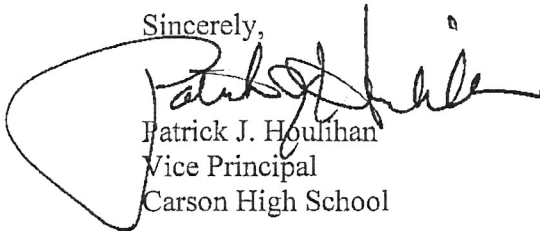 Sincerely,
Patrick J. Houlihan
Patrick J. Houlihan
Vice Principal
Carson High School